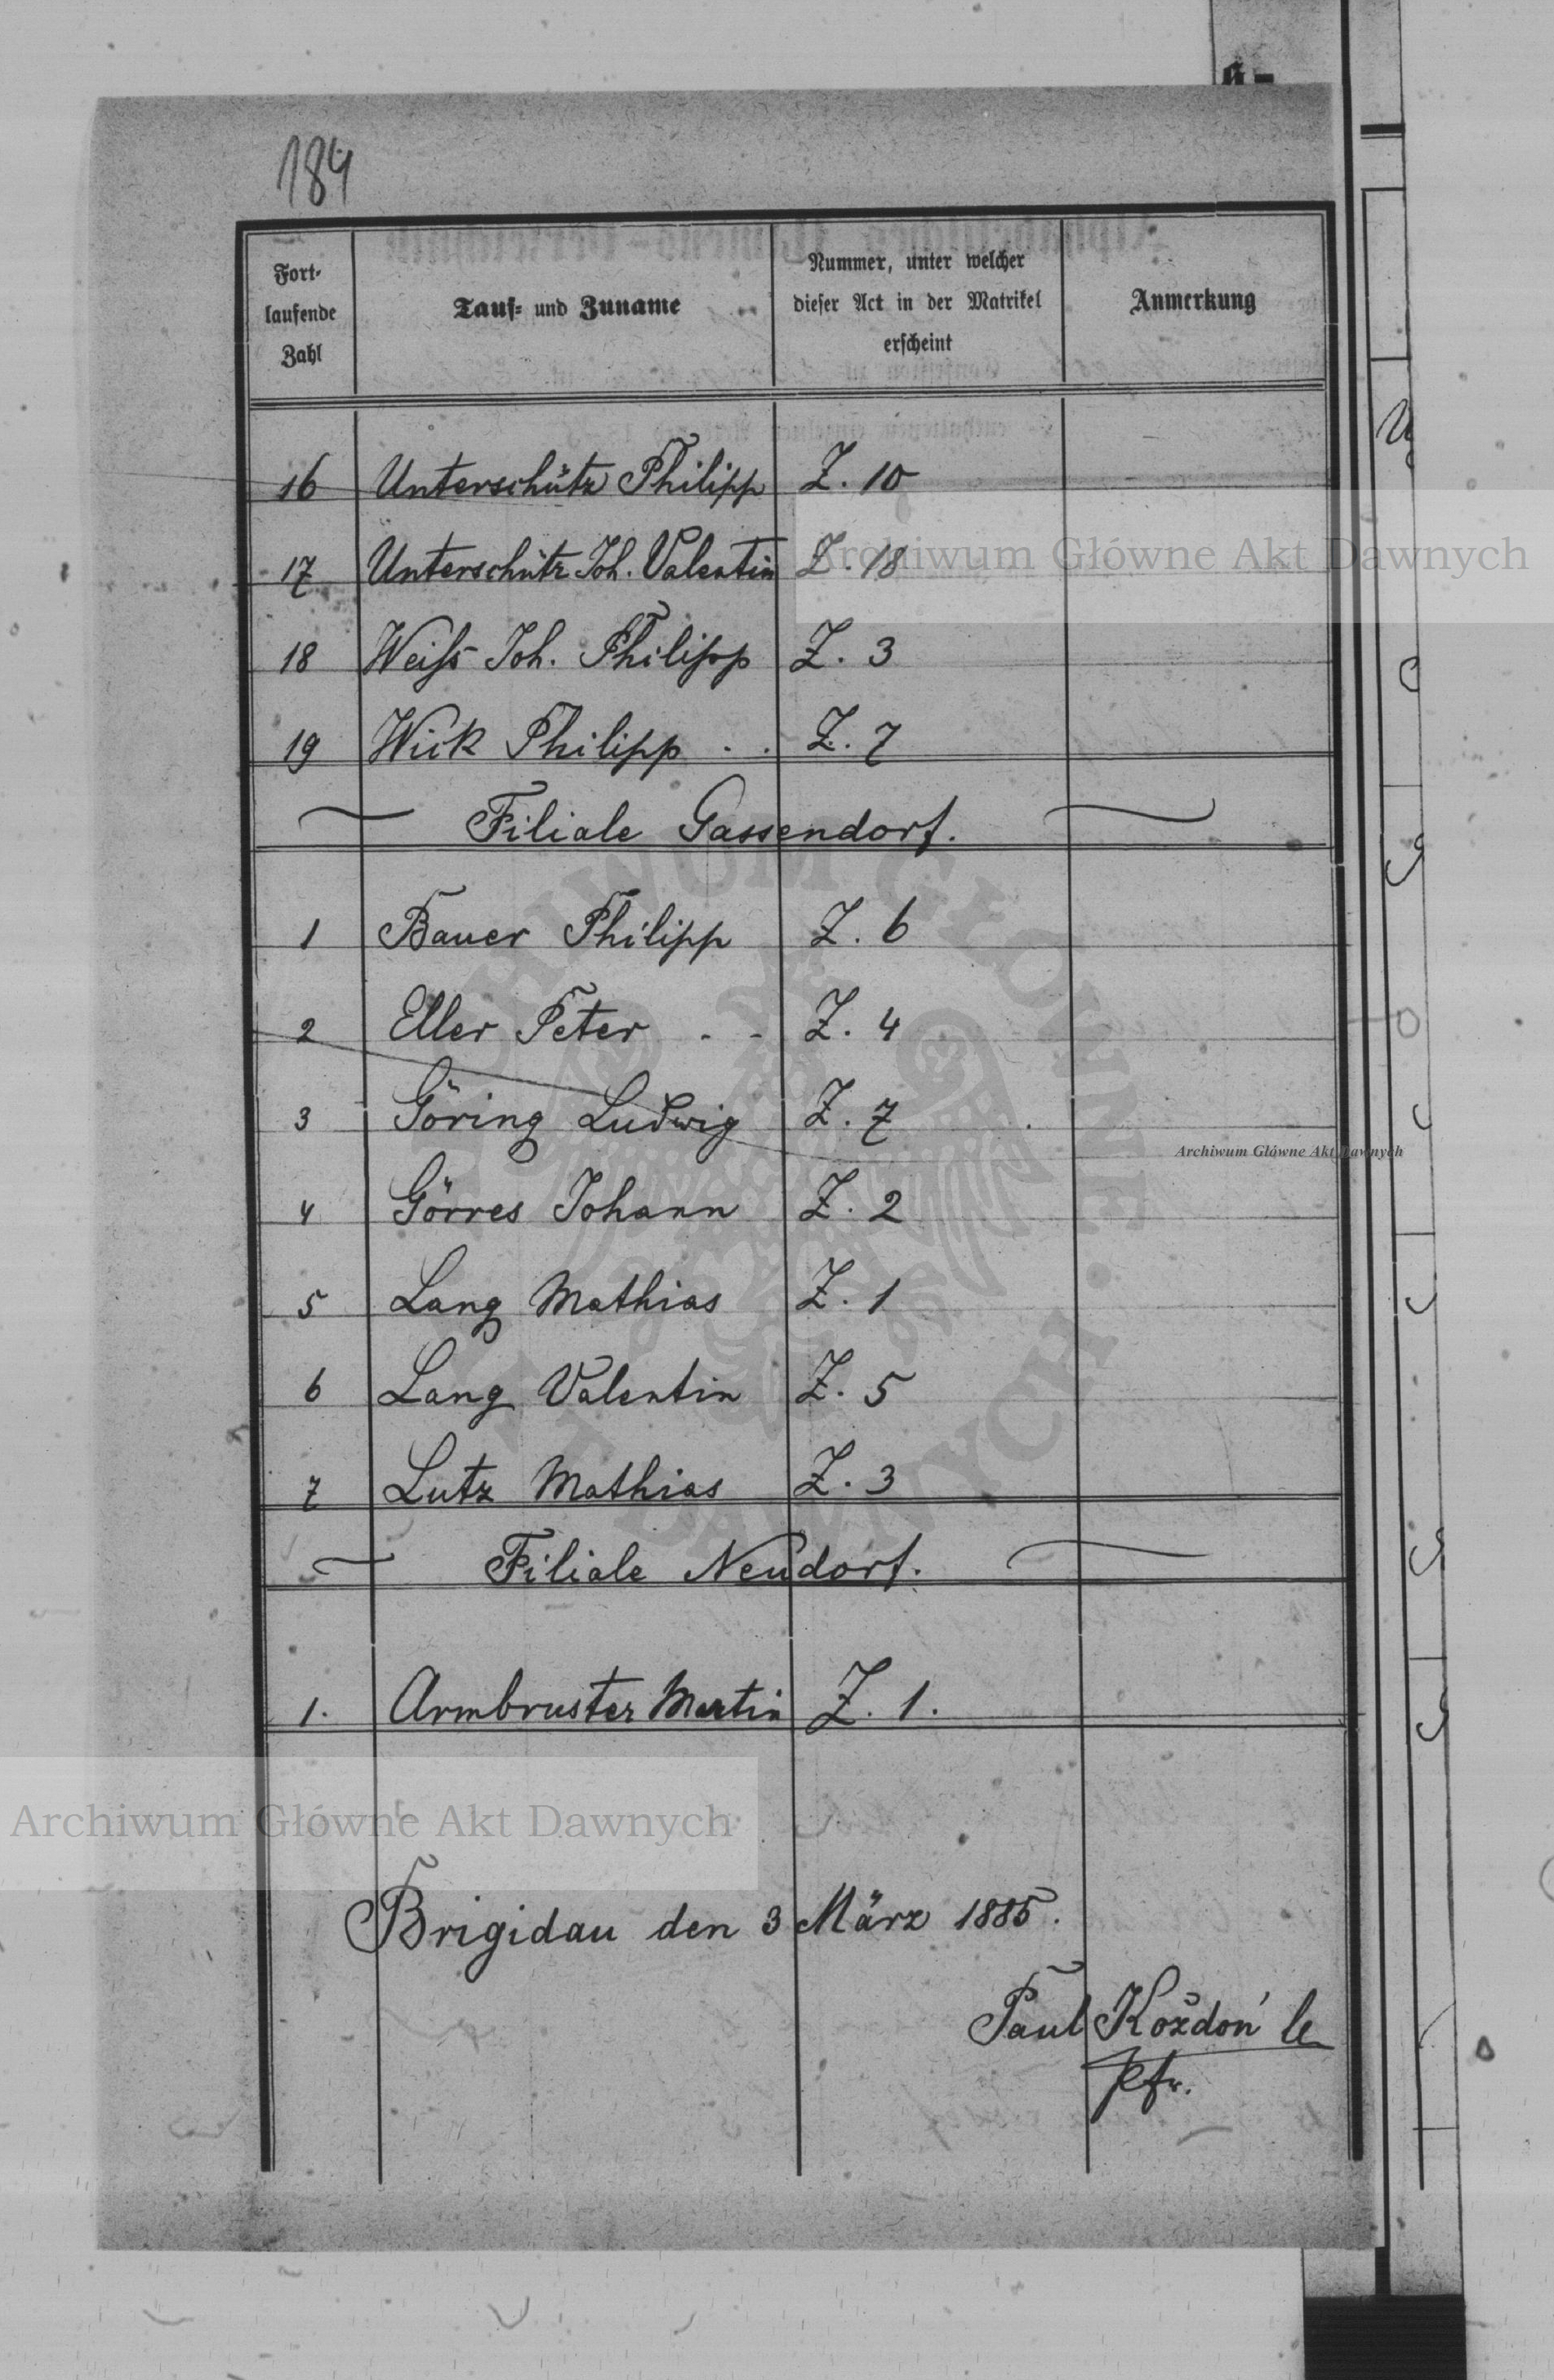 184
Fort-
laufende
Zahl
Tauf- und Zuname
Nummer, unter welcher
dieser Act in der Matrikel
erscheint
Anmerkung
16 Unterschütz Philipp Z. 10
17 Unterschütz Joh. Valentin Z. 18
18 Weiss Joh. Philipp Z. 3
19 Wick Philipp . . Z. 7
Filiale Gassendorf.
1 Bauer Philipp Z. 6
2 Eller Peter . - Z. 4
3 Göring Ludwig Z. 7
4 Görres Johann Z. 2
5 Lang Mathias Z. 1
6 Lang Valentin Z. 5
7 Lutz Mathias Z. 3
Filiale Neudorf.
1. Armbruster Martin Z. 1.
Brigidau den 3 März 1885.
Paul Koždoń
Pfr.
Archiwum Główne Akt Dawnych
Archiwum Główne Akt Dawnych
Archiwum Główne Akt Dawnych
ARCHIWUM GŁÓWNE AKT DAWNYCH